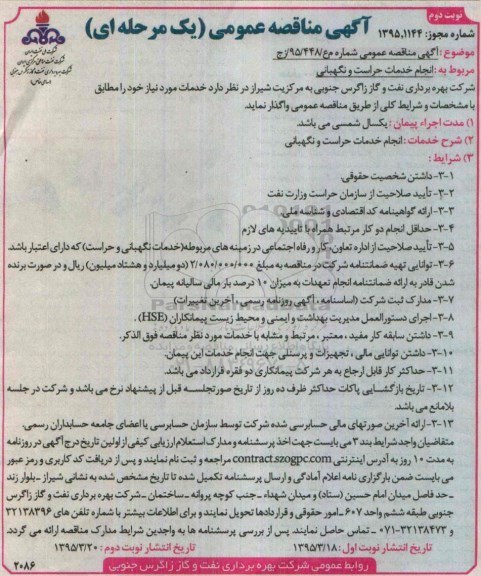 نوبت دوم
شماره مجوز: ۱۳۹۵.۱۱۴۴
آگهی مناقصه عمومی (یک مرحله ای)
موضوع : آگهی مناقصه عمومی شماره م‌ع/۹۵/۴۴۸/زج
مربوط به : انجام خدمات حراست و نگهبانی
شرکت بهره برداری نفت و گاز زاگرس جنوبی به مرکزیت شیراز در نظر دارد خدمات مورد نیاز خود را مطابق
با مشخصات و شرایط کلی از طریق مناقصه عمومی واگذار نماید.
۱) مدت اجراء پیمان : یکسال شمسی می باشد.
۲) شرح خدمات : انجام خدمات حراست و نگهبانی
۳) شرایط :
۳-۱- داشتن شخصیت حقوقی.
۳-۲- تأیید صلاحیت از سازمان حراست وزارت نفت
۳-۳- ارائه گواهینامه کد اقتصادی و شناسه ملی.
۳-۴- حداقل انجام دو کار مرتبط همراه با تاییدیه های لازم
۳-۵- تأیید صلاحیت از اداره تعاون، کار و رفاه اجتماعی در زمینه های مربوطه(خدمات نگهبانی و حراست) که دارای اعتبار باشد.
۳-۶- توانایی تهیه ضمانتنامه شرکت در مناقصه به مبلغ ۲/۰۸۰/۰۰۰/۰۰۰ (دو میلیارد و هشتاد میلیون) ریال و در صورت برنده
شدن قادر به ارائه ضمانتنامه انجام تعهدات به میزان ۱۰ درصد بار مالی سالیانه پیمان.
۳-۷- مدارک ثبت شرکت (اساسنامه ، آگهی روزنامه رسمی ، آخرین تغییرات)
۳-۸- اجرای دستورالعمل مدیریت بهداشت و ایمنی و محیط زیست پیمانکاران (HSE) .
۳-۹- داشتن سابقه کار مفید ، معتبر ، مرتبط و مشابه با خدمات مورد نظر مناقصه فوق الذکر.
۳-۱۰- داشتن توانایی مالی ، تجهیزات و پرسنلی جهت انجام خدمات این پیمان.
۳-۱۱- حداکثر کار قابل ارجاع به هر شرکت پیمانکاری دو فقره قرارداد می باشد.
۳-۱۲- تاریخ بازگشایی پاکات حداکثر ظرف ده روز از تاریخ صورتجلسه قبل از پیشنهاد نرخ می باشد و شرکت در جلسه
بلامانع می باشد.
۳-۱۳- ارائه آخرین صورتهای مالی حسابرسی شده شرکت توسط سازمان حسابرسی یا اعضای جامعه حسابداران رسمی.
متقاضیان واجد شرایط بند ۳ می بایست جهت اخذ پرسشنامه و مدارک استعلام ارزیابی کیفی از اولین تاریخ درج آگهی در روزنامه
به مدت ۱۰ روز به آدرس اینترنتی contract.szogpc.com مراجعه و ثبت نام نمایند و پس از دریافت کد کاربری و رمز عبور
می بایست ضمن بارگزاری نامه اعلام آمادگی و ارسال پرسشنامه تکمیل شده تا تاریخ مشخص شده به نشانی شیراز ـ بلوار زند
ـ حد فاصل میدان امام حسین (ستاد) و میدان شهداء ـ جنب کوچه پروانه ـ ساختمان ـ شرکت بهره برداری نفت و گاز زاگرس
جنوبی طبقه ششم واحد ۶۰۷ ـ امور حقوقی و قراردادها تحویل نمایند و برای اطلاعات بیشتر با شماره تلفن های ۳۲۱۳۸۳۹۶
و ۳۲۱۳۸۴۷۳-۰۷۱ ـ تماس حاصل نمایند. پس از بررسی پرسشنامه ها به واجدین شرایط مدارک مناقصه ارائه می گردد.
تاریخ انتشار نوبت اول : ۱۳۹۵/۳/۱۸
تاریخ انتشار نوبت دوم : ۱۳۹۵/۳/۲۰
روابط عمومی شرکت بهره برداری نفت و گاز زاگرس جنوبی
۲۰۸۶